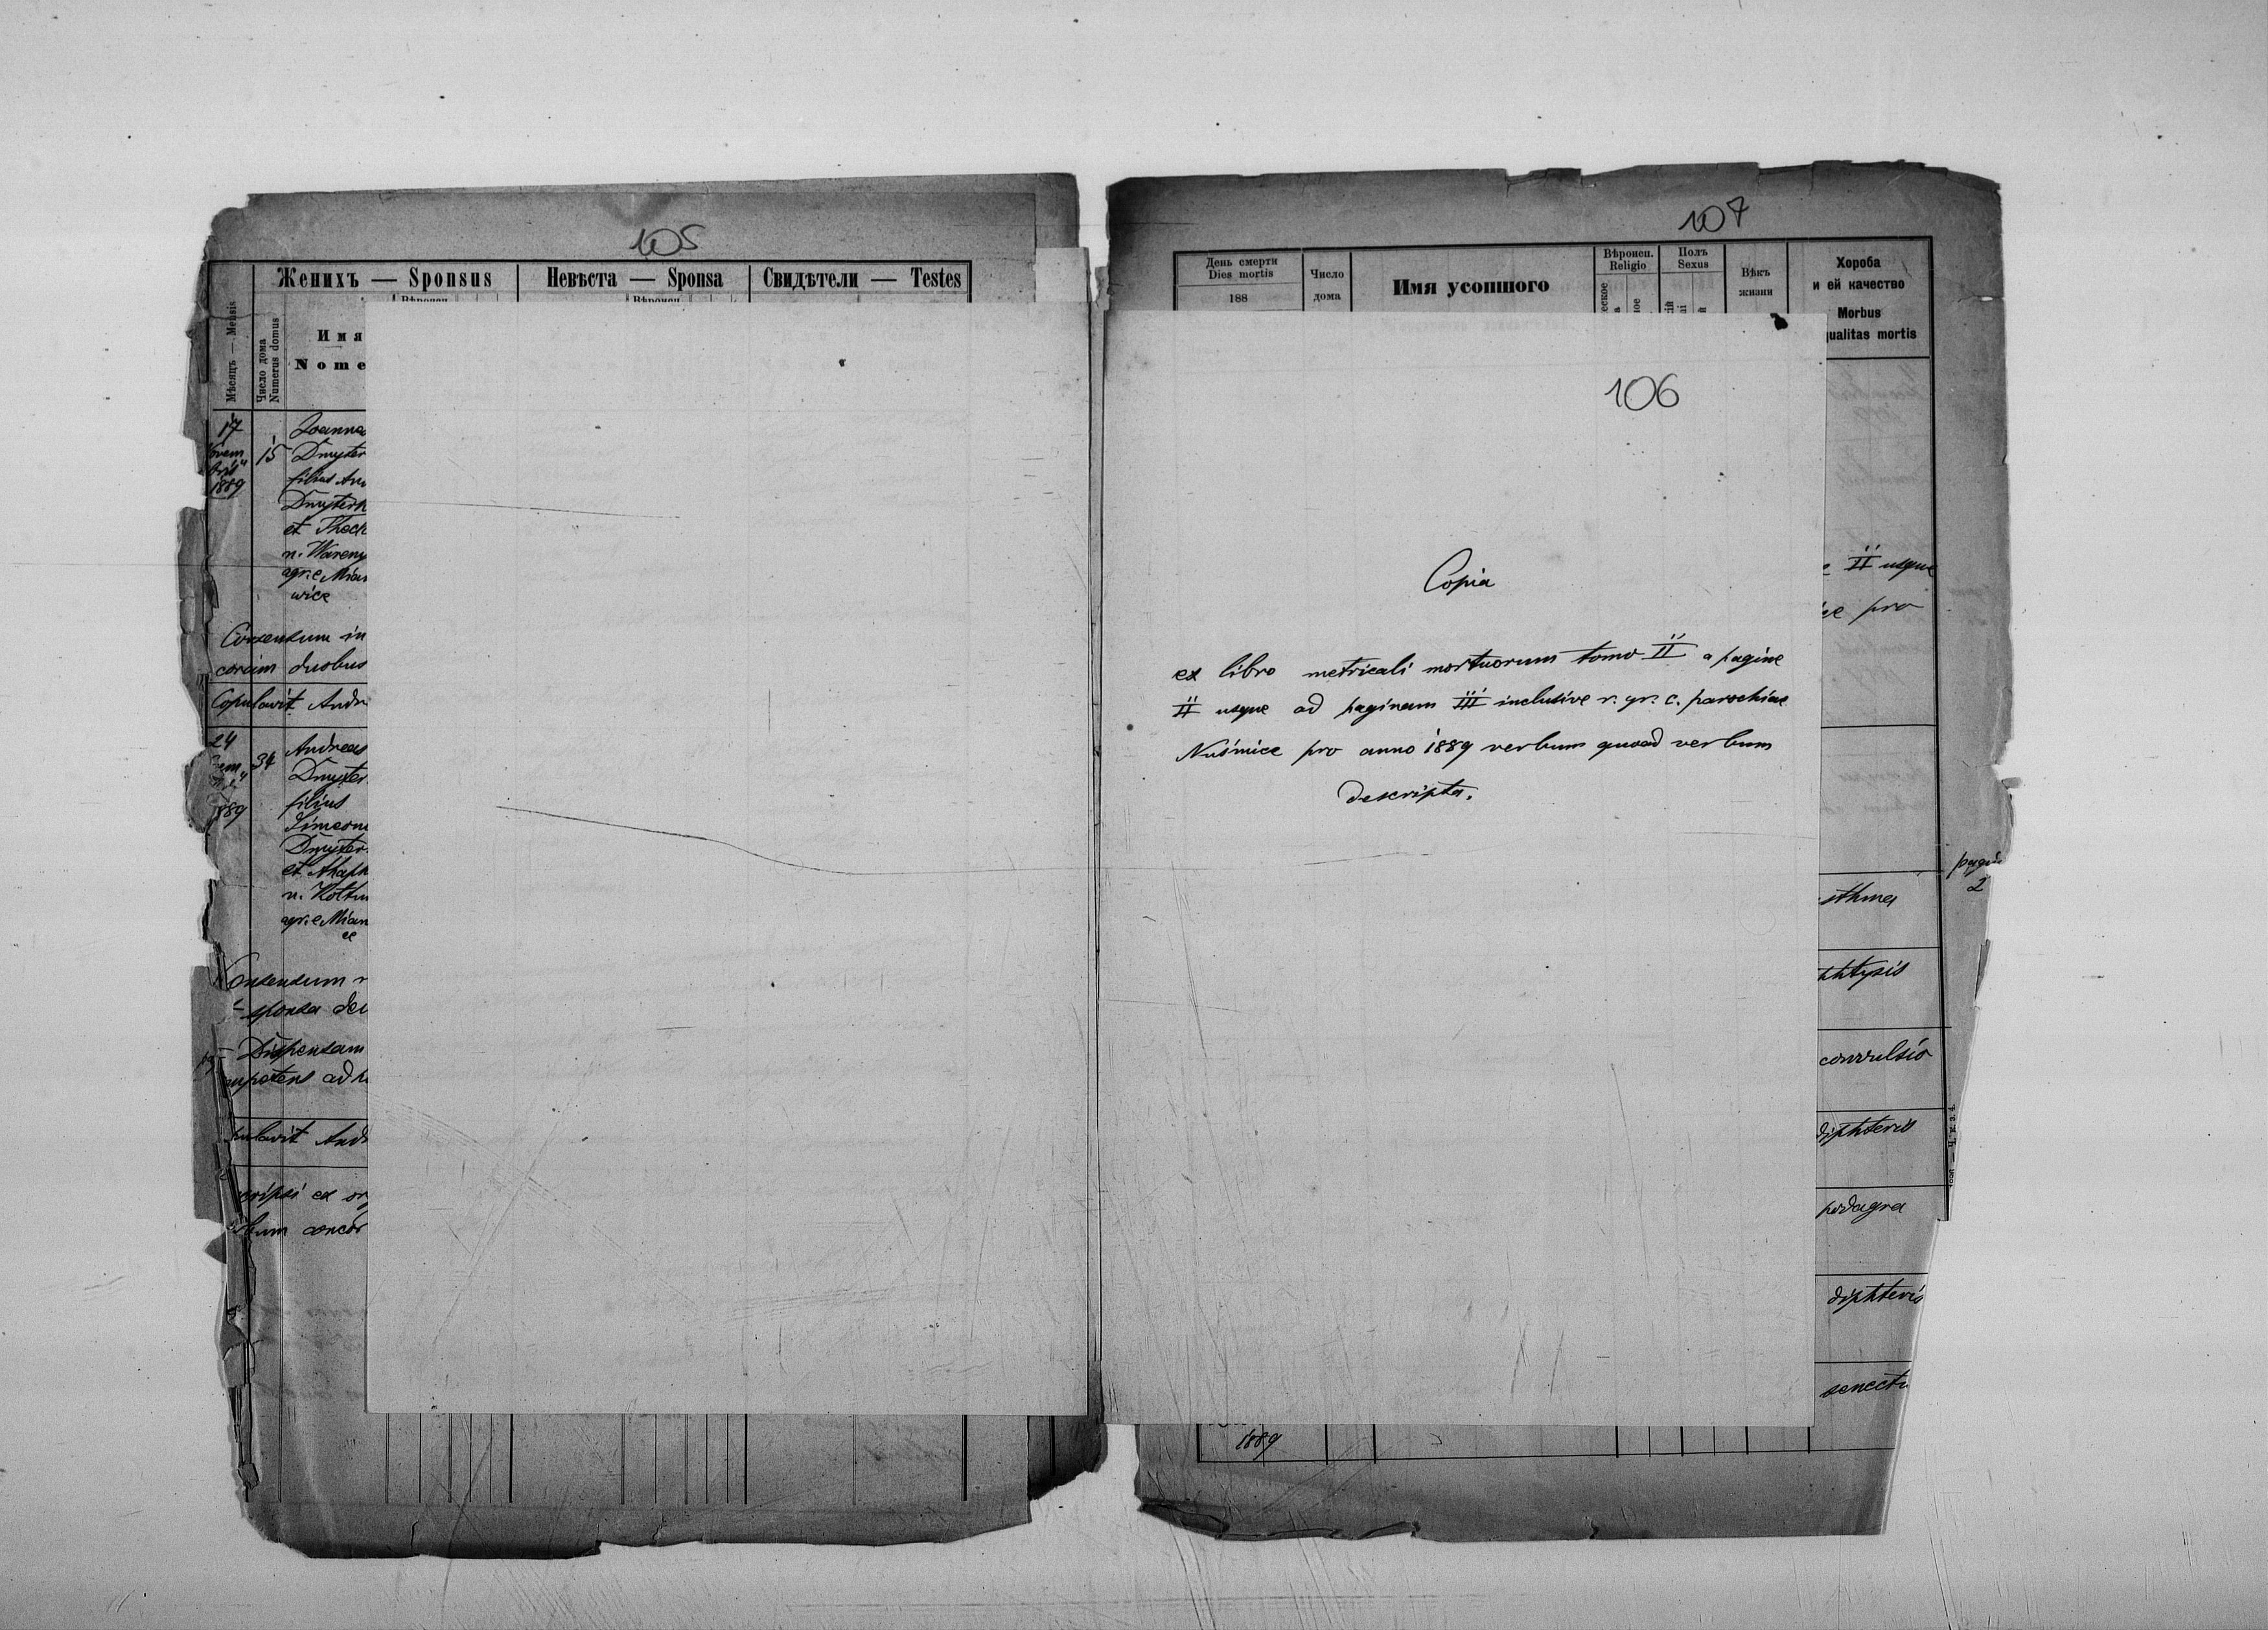 105
Женихъ — Sponsus
Невѣста — Sponsa
Свидѣтели — Testes
Мѣсяцъ — Mensis
Число дома
Numerus domus
Имя
Nome
17
15
1889
Joanna
Dmyter
filius
Dmyter
et Theck
n. Wareny
wice
Consensum in
duobus
Copulavit Andr
24
34
889
Andreas
Dmyter
filius
Simeon
Dmyter
et
n.
onsensum
sponsa
Dispensam
pulavit And
ex or
concor
107
День смерти
Dies mortis
188
Число
дома
Имя усопшого
Вѣроисп.
Religio
Полъ
Sexus
Вѣкъ
жизни
Хороба
и ей качество
Morbus
qualitas mortis
106
Copia
ex libro metricali mortuorum tomo II a pagine
II usque ad paginam III inclusive r. gr. c. parochiae
Nuśmice pro anno 1889 verbum quoad verbum
descripta.
II usque
pro
pagina
2
sthma
phtysis
convulsio
diphteris
podagra
diphteris
senectu
1889